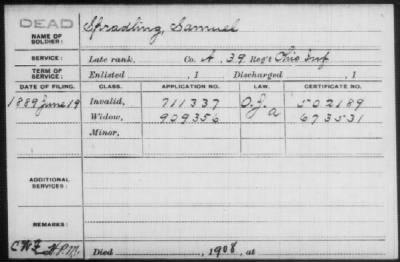 DEAD
NAME OF SOLDIER: Spradling, Samuel
SERVICE: Late rank, Co. A, 39 Reg't Ohio Inf
TERM OF SERVICE: Enlisted , 1 Discharged , 1
DATE OF FILING. CLASS. APPLICATION NO. LAW. CERTIFICATE NO.
1889 June 19 Invalid, 711337 502189
Widow, 909356 673531
Minor,
ADDITIONAL SERVICES:
REMARKS:
Died , 1908, at